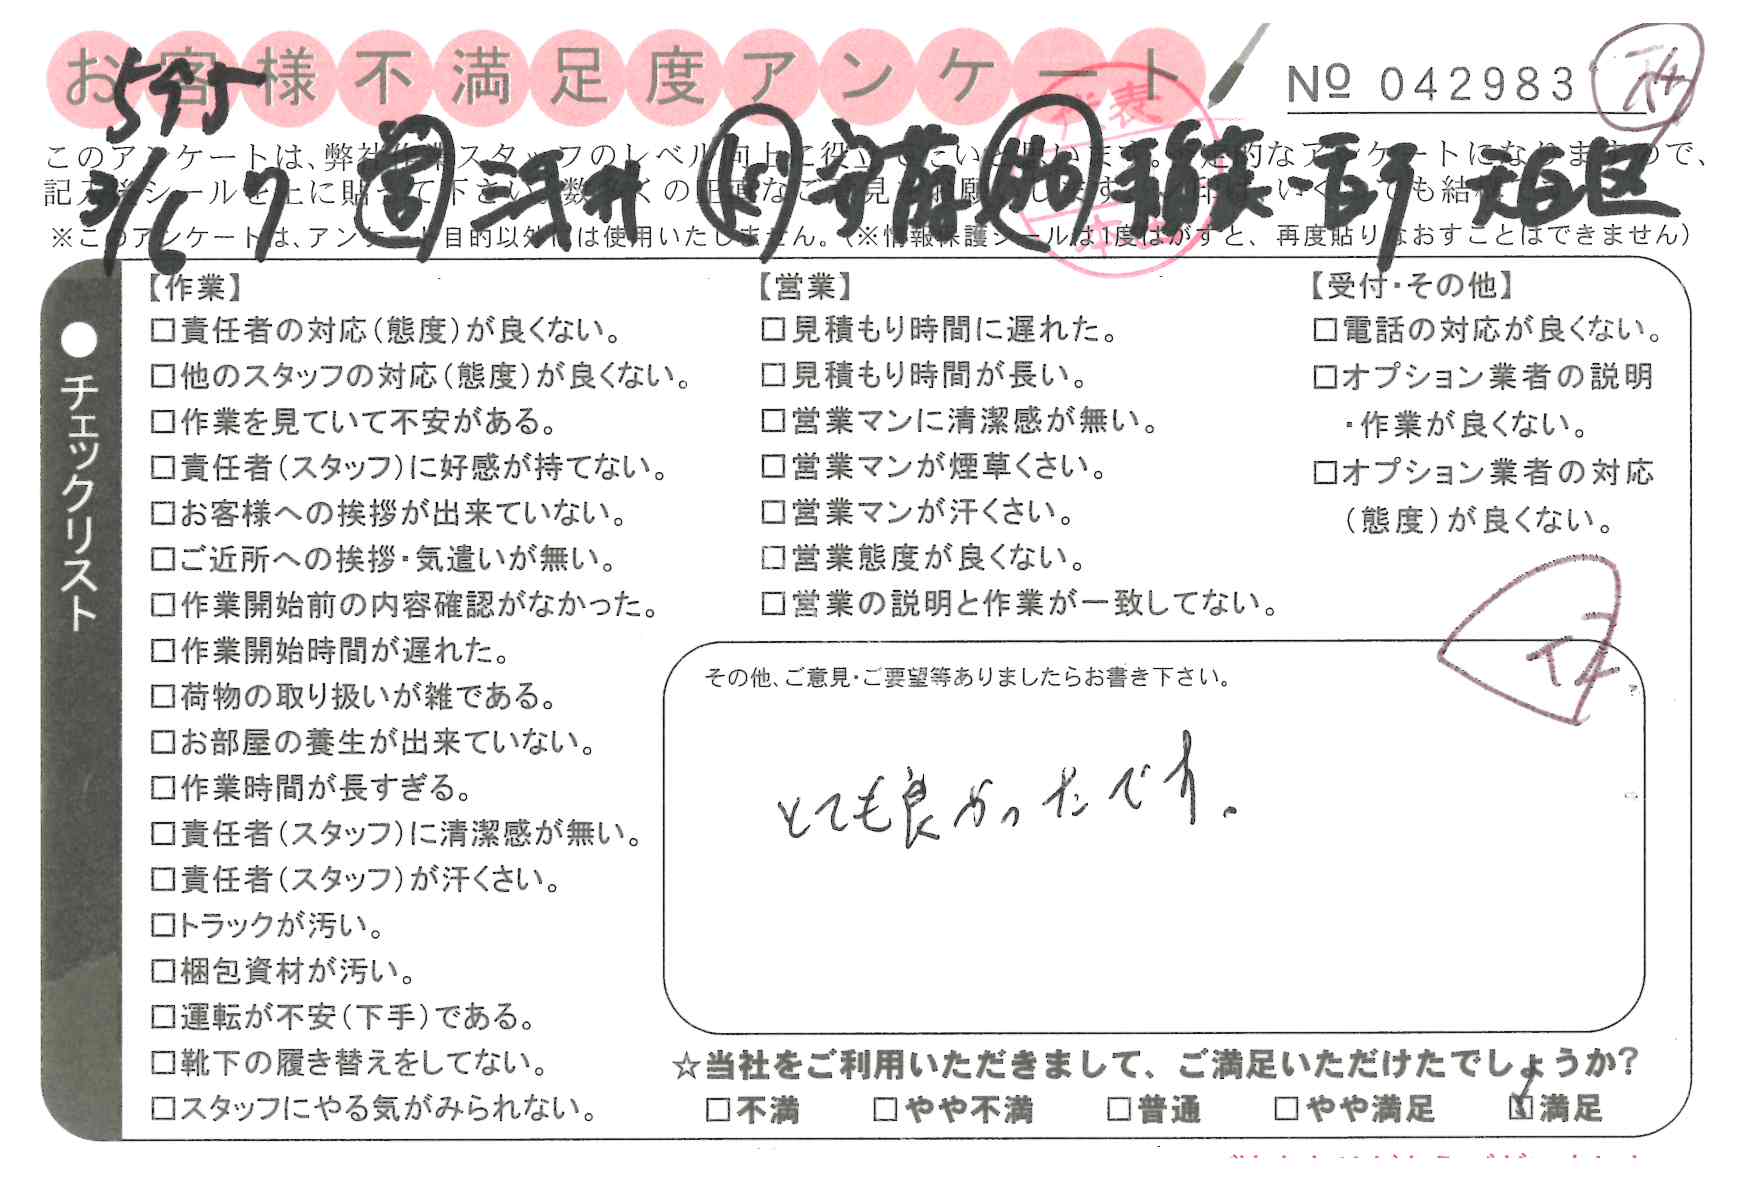 お客様不満足度アンケート
№ 042983
595
3/6 7 営 浅井 ド 安藤 助
このアンケートは、弊社作業スタッフのレベル向上に役立てたいと思います。
記入後シールを上に貼って下さい。
※このアンケートは、アンケート目的以外には使用いたしません。(※情報保護シールは1度はがすと、再度貼りなおすことはできません)
●チェックリスト
【作業】
□責任者の対応(態度)が良くない。
□他のスタッフの対応(態度)が良くない。
□作業を見ていて不安がある。
□責任者(スタッフ)に好感が持てない。
□お客様への挨拶が出来ていない。
□ご近所への挨拶・気遣いが無い。
□作業開始前の内容確認がなかった。
□作業開始時間が遅れた。
□荷物の取り扱いが雑である。
□お部屋の養生が出来ていない。
□作業時間が長すぎる。
□責任者(スタッフ)に清潔感が無い。
□責任者(スタッフ)が汗くさい。
□トラックが汚い。
□梱包資材が汚い。
□運転が不安(下手)である。
□靴下の履き替えをしてない。
□スタッフにやる気がみられない。
【営業】
□見積もり時間に遅れた。
□見積もり時間が長い。
□営業マンに清潔感が無い。
□営業マンが煙草くさい。
□営業マンが汗くさい。
□営業態度が良くない。
□営業の説明と作業が一致してない。
【受付・その他】
□電話の対応が良くない。
□オプション業者の説明
・作業が良くない。
□オプション業者の対応
(態度)が良くない。
その他、ご意見・ご要望等ありましたらお書き下さい。
とても良かったです。
☆当社をご利用いただきまして、ご満足いただけたでしょうか?
□不満 □やや不満 □普通 □やや満足 ☑満足